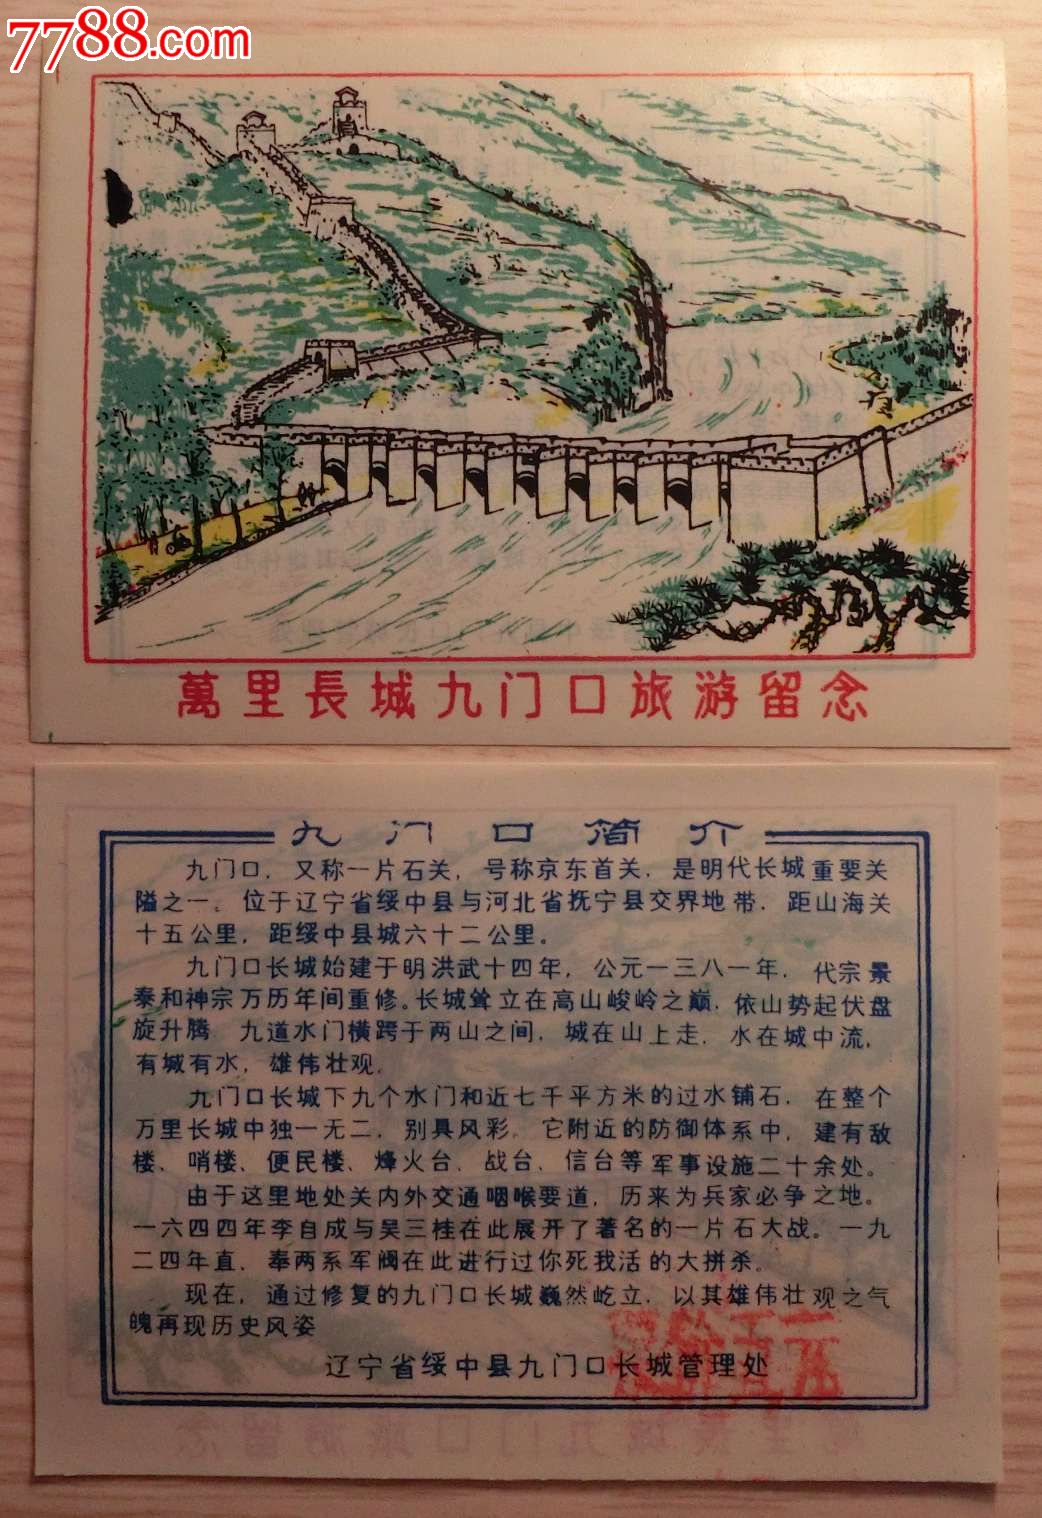 7788.com
萬里長城九门口旅游留念
九门口简介
九门口，又称一片石关，号称京东首关，是明代长城重要关
隘之一。位于辽宁省绥中县与河北省抚宁县交界地带．距山海关
十五公里，距绥中县城六十二公里。
九门口长城始建于明洪武十四年，公元一三八一年，代宗景
泰和神宗万历年间重修。长城耸立在高山峻岭之巅，依山势起伏盘
旋升腾 九道水门横跨于两山之间，城在山上走，水在城中流，
有城有水，雄伟壮观．
九门口长城下九个水门和近七千平方米的过水铺石，在整个
万里长城中独一无二，别具风彩。它附近的防御体系中，建有敌
楼、哨楼、便民楼、烽火台、战台、信台等军事设施二十余处。
由于这里地处关内外交通咽喉要道，历来为兵家必争之地。
一六四四年李自成与吴三桂在此展开了著名的一片石大战。一九
二四年直、奉两系军阀在此进行过你死我活的大拼杀。
现在，通过修复的九门口长城巍然屹立，以其雄伟壮观之气
魄再现历史风姿
辽宁省绥中县九门口长城管理处